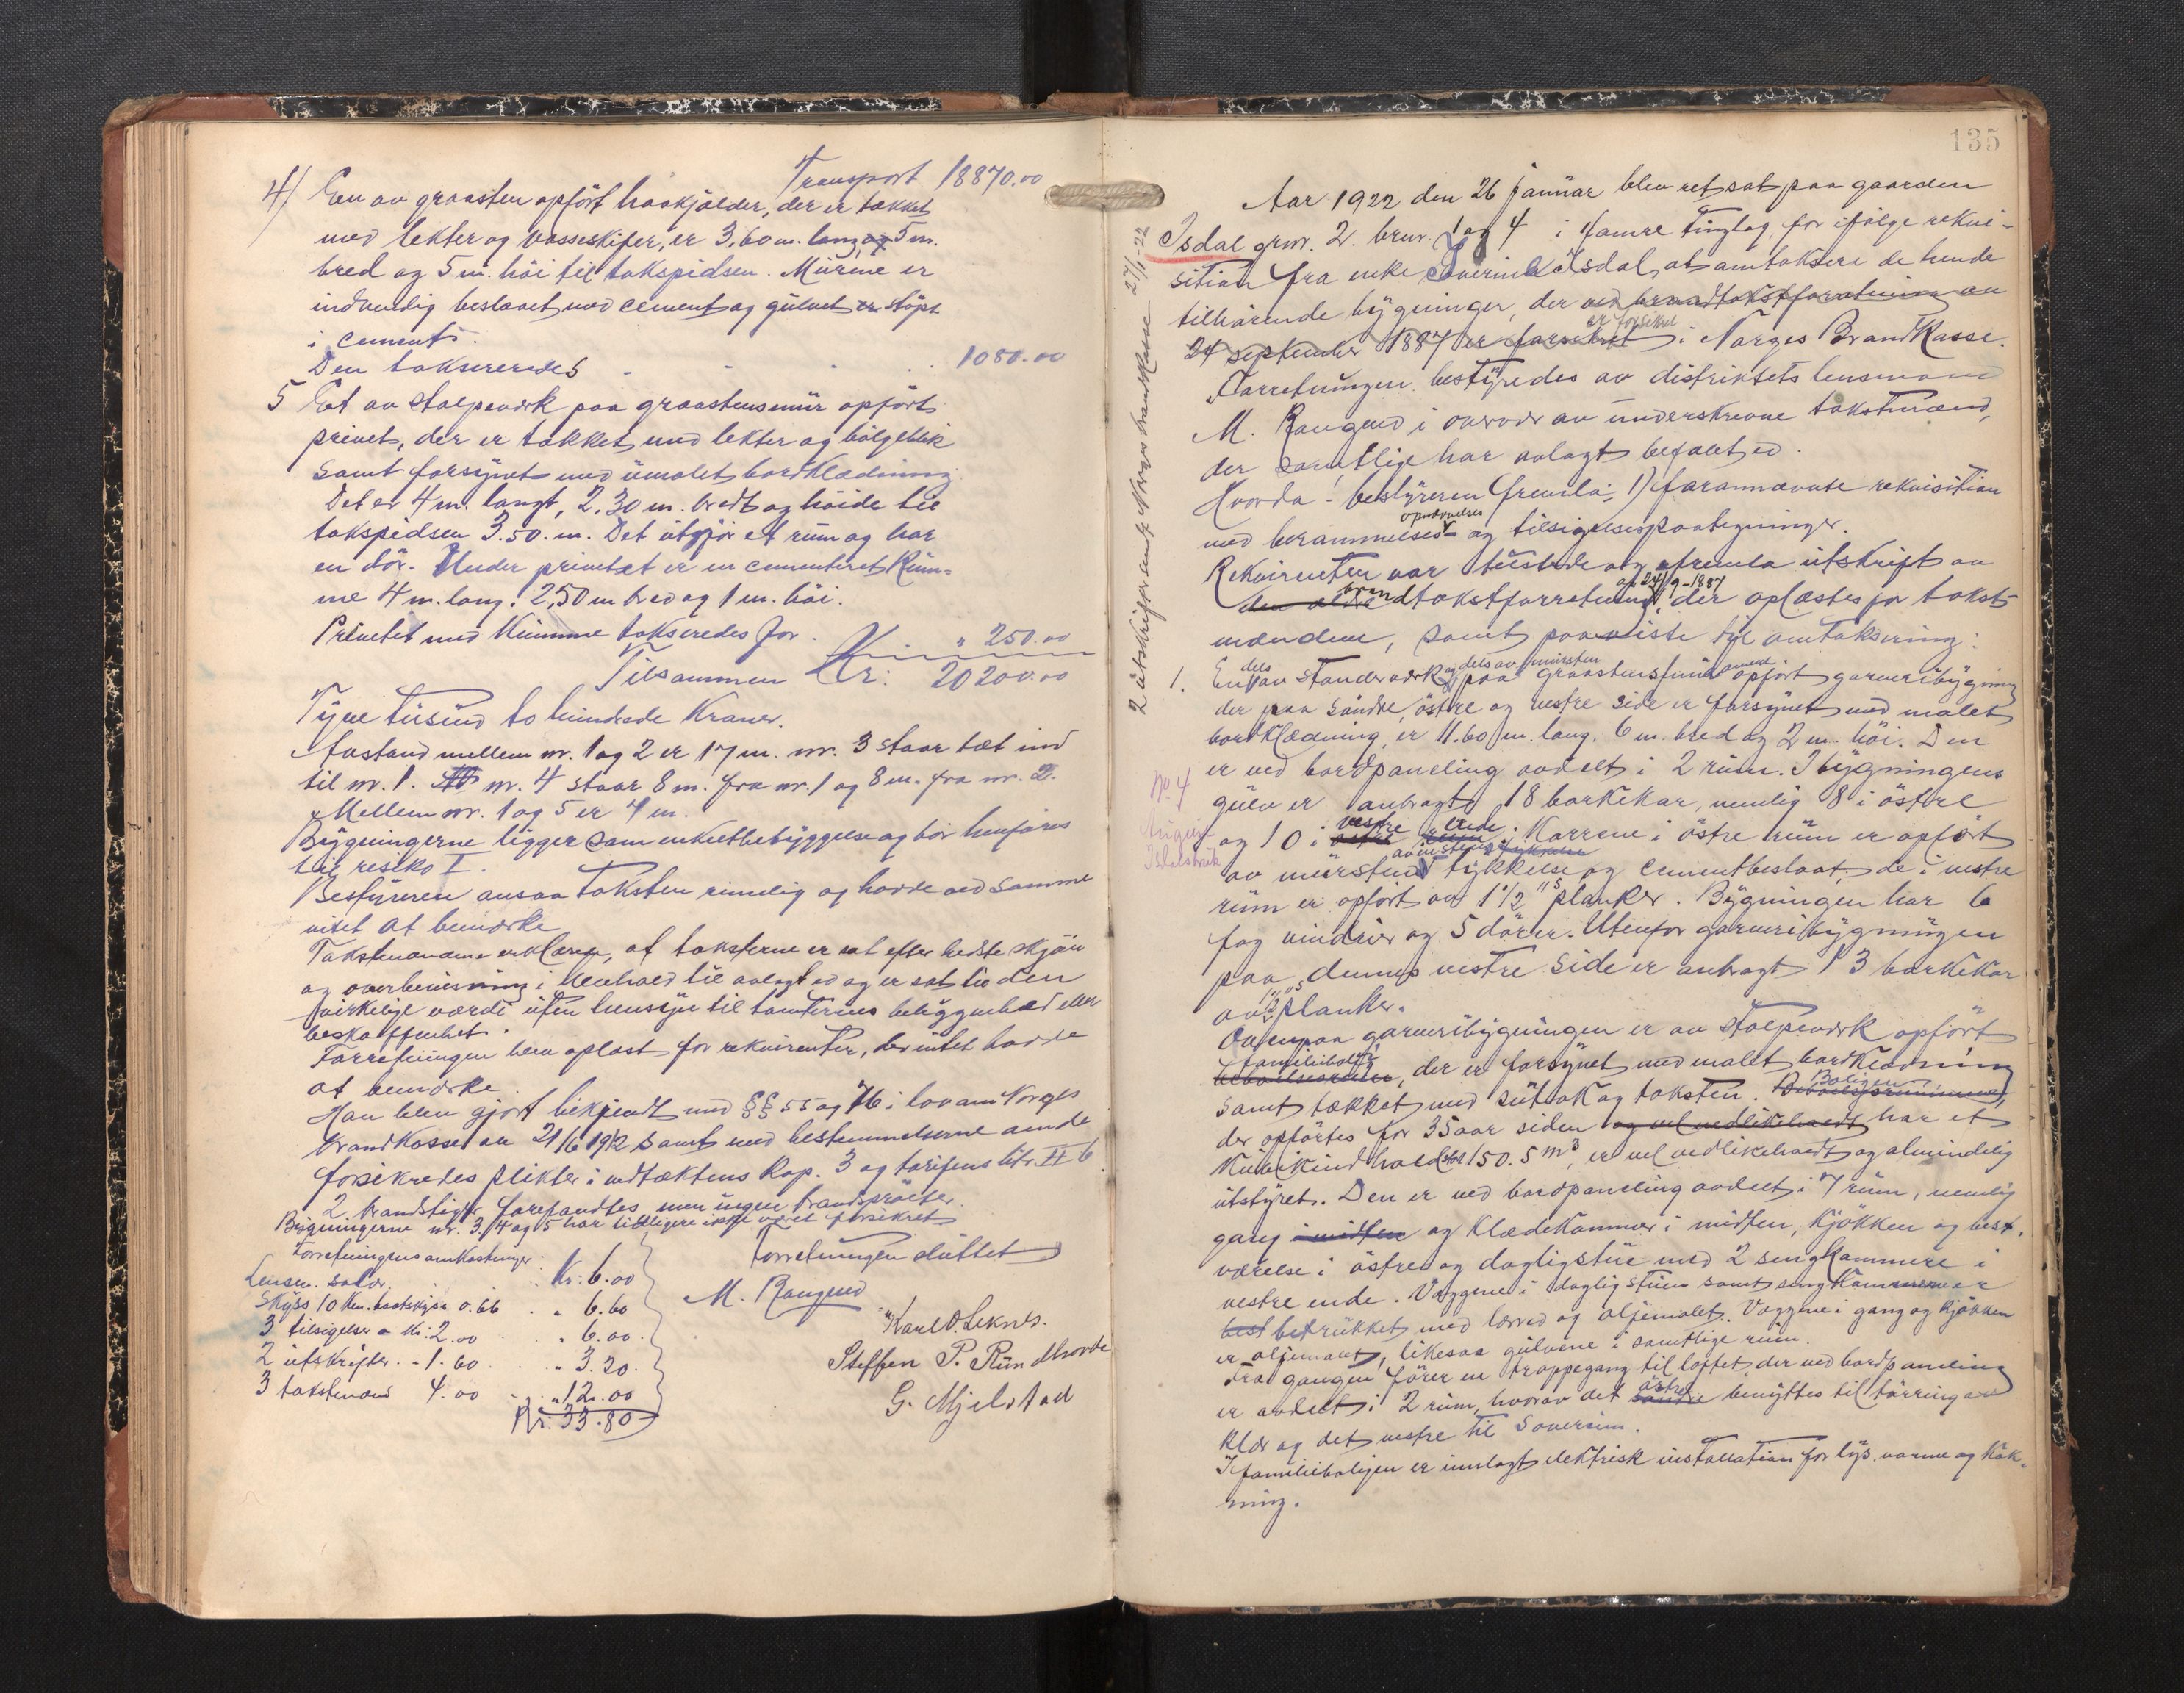 Transport 18870.00
4) Een av graasten opført haakjælder, der er tækket
med lekter og Vosseskifer, er 3,60 m. lang og 5 m.
bred og 5 m. høi til takspidsen. Murene er
indvendig beslaaet med cement og gulvet er støpt
i cement.
Den takseredes 1080.00
5 Et av stolpeværk paa graastensmur opført
privet, der er tækket med lekter og bølgeblik
samt forsynet med umalet bordklædning
Det er 4 m. langt, 2,30 m. bredt og høide til
takspidsen 3.50. m. Det utgjør et rum og har
en dør. Under privetet er en cementeret Kum-
me 4 m. lang. 2,50 m bred og 1 m. høi.
Privetet med Kumme takseredes for " 250.00
Tilsammen Kr: 20200.00
Tyve tusind to hundrede Kroner.
Avstand mellem nr. 1 og 2 er 17 m. nr. 3 staar tæt ind
til nr. 1. nr. 4 staar 8 m. fra nr. 1 og 8 m. fra nr. 2.
Mellem nr. 1 og 5 er 4 m.
Bygningerne ligger som enkeltbebyggelse og bør henføres
til risiko I.
Bestyreren ansaa taksten rimelig og havde ved samme
intet at bemerke
Takstmændene erklærer, at taksterne er sat efter bedste skjøn
og overbevisning i henhold til avlagt ed og er sat til den
virkelige værdi uten hensyn til tomternes beliggenhed eller
beskaffenhet.
Forretningen blev oplæst for rekvirenten, der intet havde
at bemerke.
Han blev gjort bekjendt med §§ 55 og 76 i lov om Norges
brandkasse av 21/6 1912 samt med bestemmelserne om de
forsikredes plikter i vedtæktens Kap. 3 og tarifens litr. II b
2 brandstiger forefandtes men ingen brandsprøiter.
Bygningerne nr. 3, 4 og 5 har tidligere ikke været forsikret
Forretningens omkostninger:
Forretningen sluttet
Lensm. salær. Kr: 6.00
Skyss 10 km. baatskyss a 0.66 " 6.60
3 tilsigelser a Kr: 2.00 " 6.00
2 utskrifter - 1.60 " 3.20
3 takstmænd 4.00 " 12.00
Kr: 33.80
M. Rangmed
Karl O. Seknes.
Steffen P. Rundhovde
G. Mjelstad
135
Aar 1922 den 26 januar blev ret sat paa gaarden
Isdal grnr. 2. brnr. 1 og 4 i Hamre Tinglag, for ifølge rekvi-
sition fra enke Severine Isdal at omtaksere de hende
tilhørende bygninger, der ved brandtakstforretning av
24 september 1887 er forsikret i Norges Brandkasse.
er forsikret
Forretningen bestyredes av distriktets lensmand
M. Rangmed i overvær av underskrevne takstmænd,
der samtlige har avlagt befalet ed.
Hvorda! bestyreren fremla: 1) forannævnte rekvisition
med berammelses- opnævnelses og tilsigelsespaategninger.
Rekvirenten var tilstede og fremla utskrift av
den ældre brandtakstforretning av 24/9-1887, der oplæstes for takst-
mændene, samt paaviste til omtaksering:
1. En dels av standerværk og dels av mursten paa graastensfundament opført garveribygning
der paa søndre, østre og vestre side er forsynet med malet
bordklædning, er 11.60 m. lang. 6 m. bred og 2 m. høi. Den
er ved bordpaneling avdelt i 2 rum. I bygningens
gulv er anbragt 18 barkekar, nemlig 8 i østre
og 10 i østre vestre ende. Karrene i østre rum er opført
av mursten av 1/2 stens tykkelse og cementbeslaat, de i vestre
rum er opført av 1 1/2"s planker. Bygningen har 6
fag vinduer og 5 dører. Utenfor garveribygningen
paa dennes vestre side er anbragt 13 barkekar
av 1 1/2"s planker.
Ovenpaa garveribygningen er av stolpeværk opført
familiebolig, der er forsynet med malet bordklædning
samt tækket med sutak og taksten. Boligen,
der opførtes for 35 aar siden og vel vedlikeholdt har et
Kubikindhold stort 150.5 m³, er vel vedlikeholdt og almindelig
utstyret. Den er ved bordpaneling avdelt i 7 rum, nemlig
gang i midten og klædekammer i midten, kjøkken og best.
værelse i østre og dagligstue med 2 sengkammere i
vestre ende. Væggene i dagligstuen samt sengkammere er
betrukket med lerred og oljemalet. Væggene i gang og kjøkken
er oljemalt, likesaa gulvene i samtlige rum.
Fra gangen fører en trappegang til loftet der ved bordpaneling
er avdelt i 2 rum, hvorav det søndre østre benyttes til tørring av
klær og det vestre til soverum.
I familieboligen er innlagt elektrisk installation for lys, varme og kok-
ning.
2 utskrifter sendt Norges brandkasse 27/1-22
Nr. 4